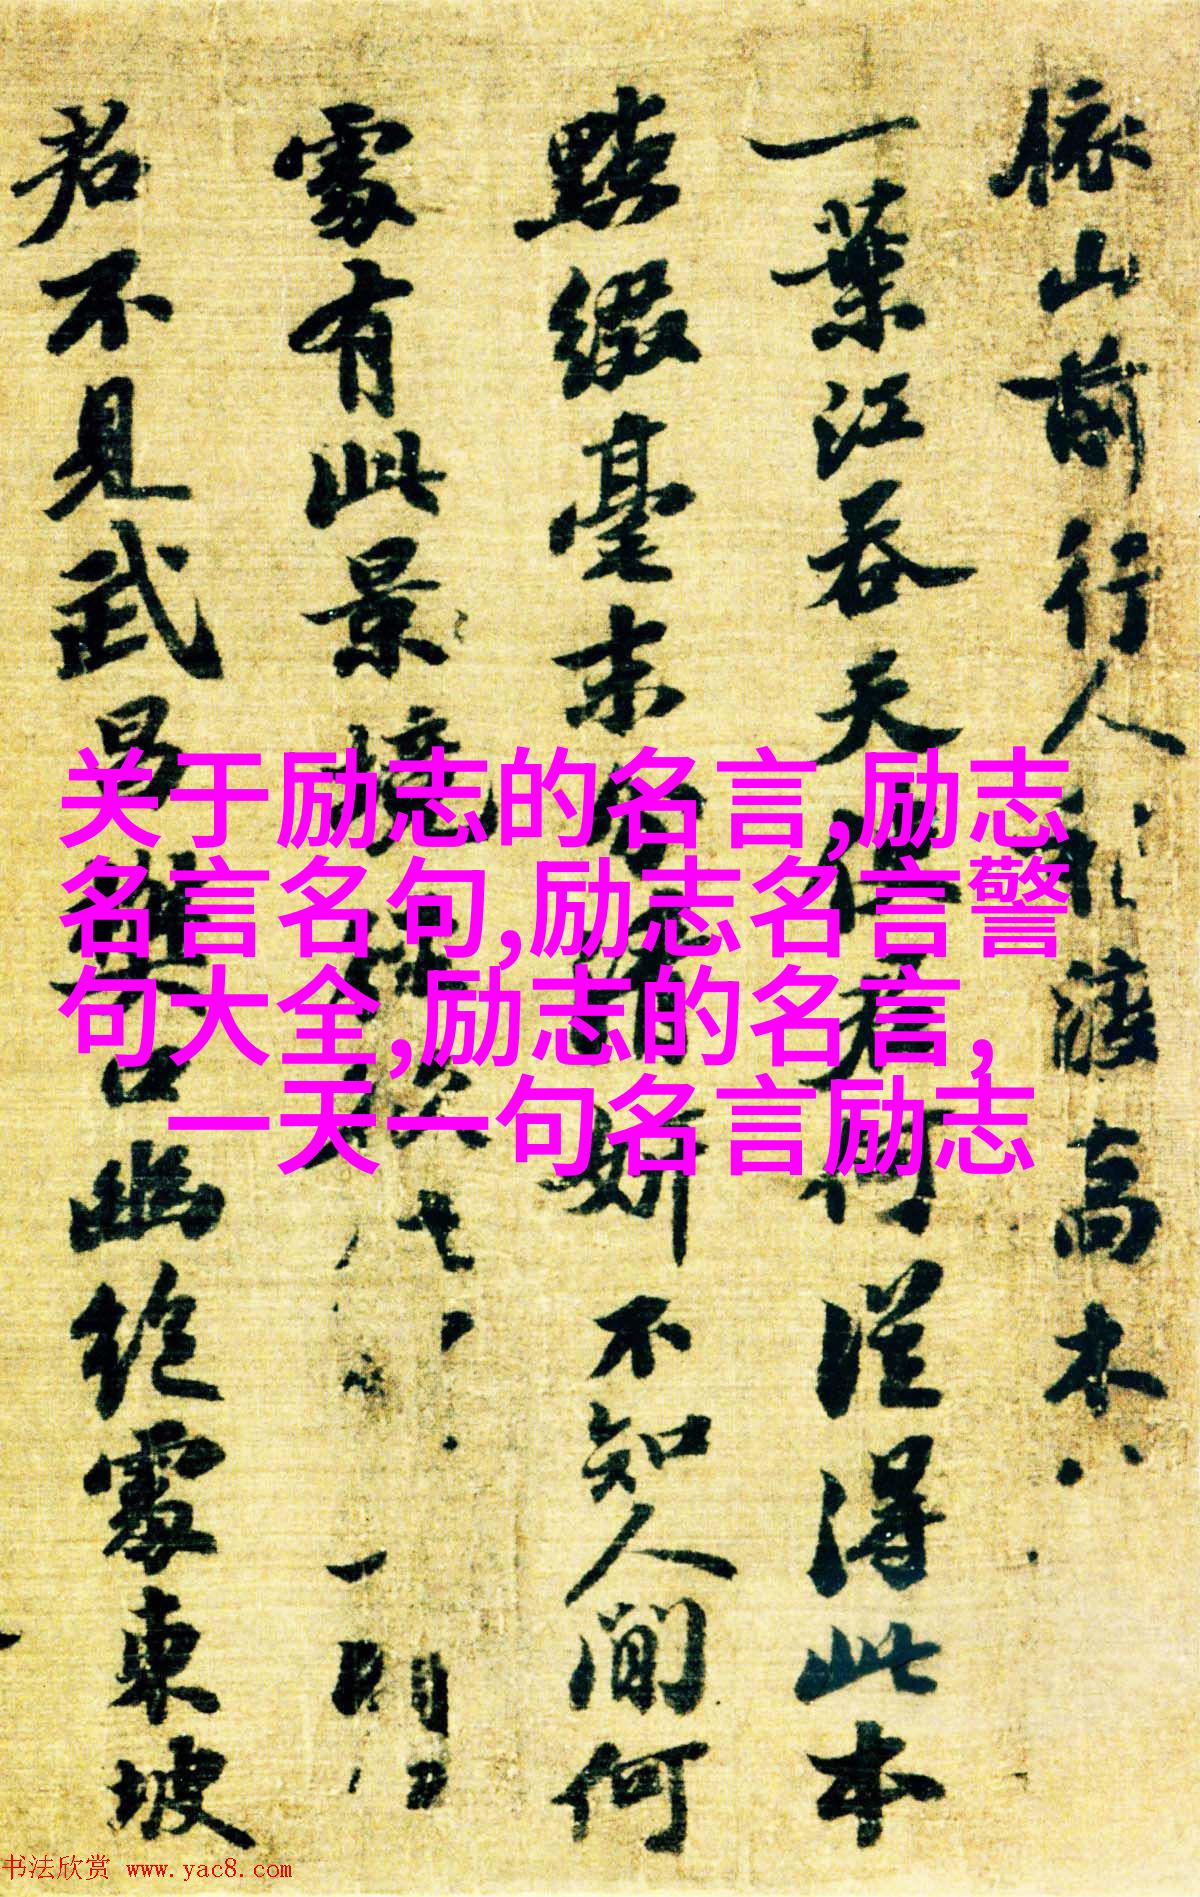 依山前行人稍渡高木
一葉江吞天使君何從得此本
點綴毫末分清妍不知人間何
處有此景境
君不見武昌樊口幽絕處東坡
关于励志的名言,励志
名言名句,励志名言警
句大全,励志的名言,
一天一句名言励志
书法欣赏 www.yac8.com